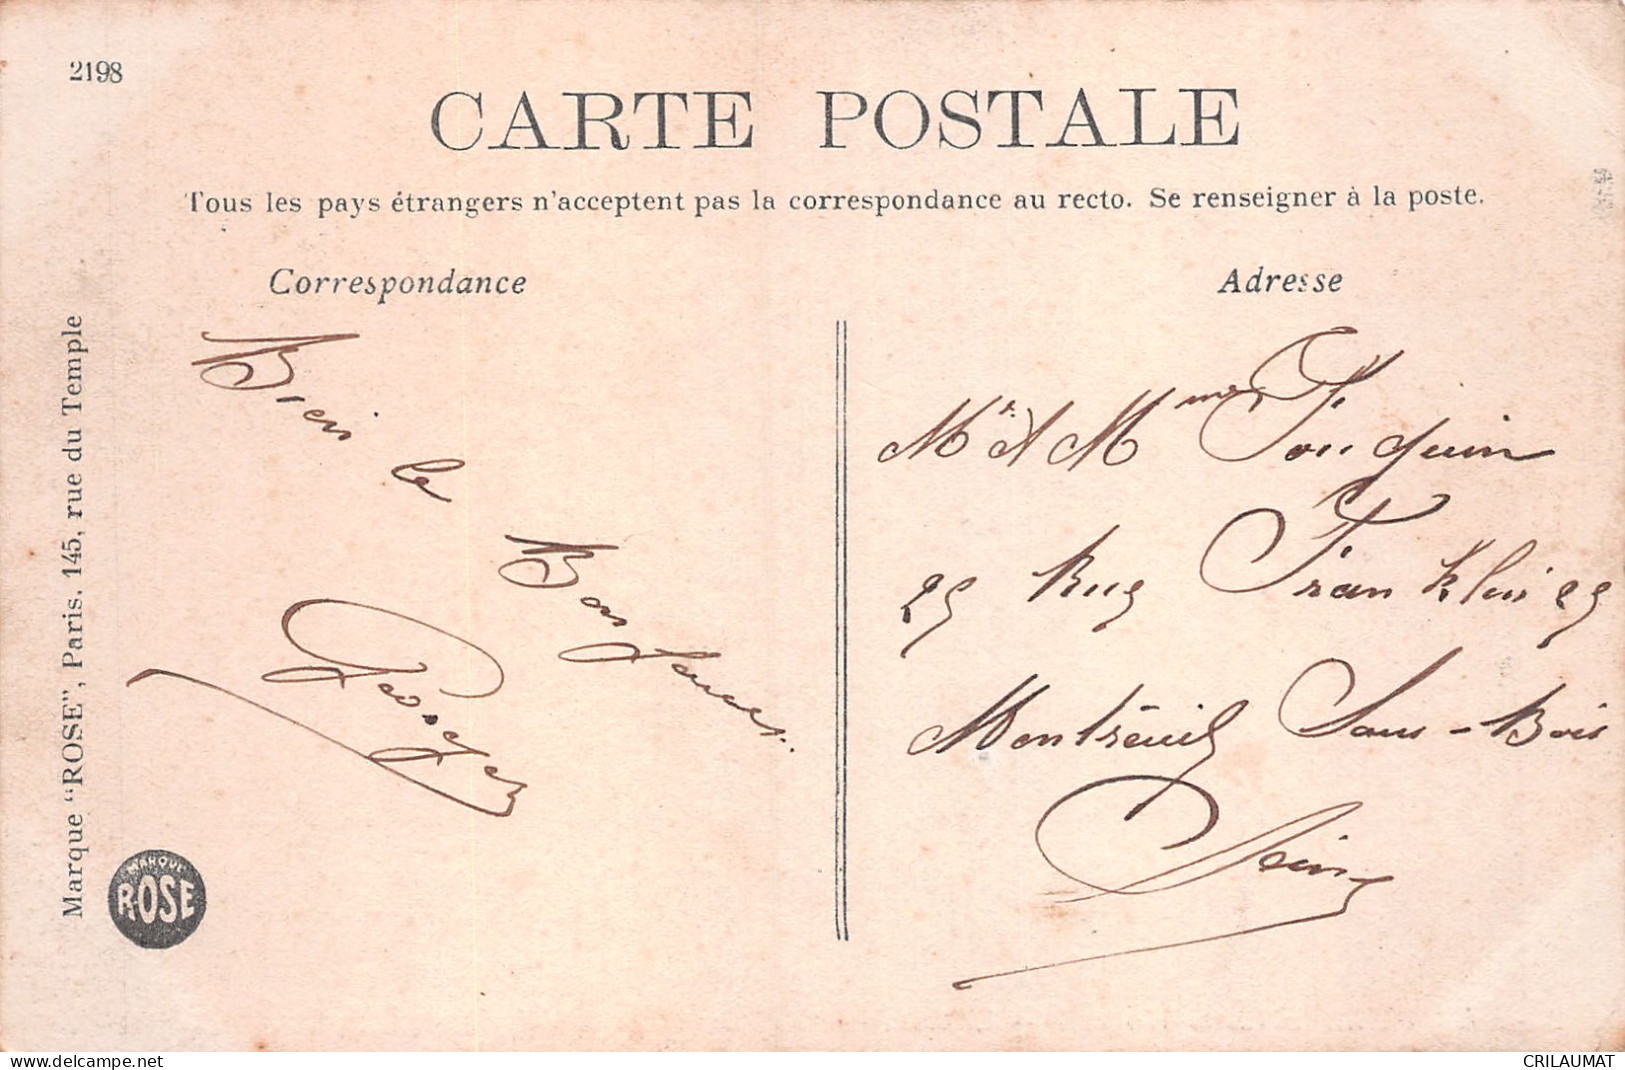 2198
CARTE POSTALE
Tous les pays étrangers n'acceptent pas la correspondance au recto. Se renseigner à la poste.
Correspondance
Bien le
Bonjour
Georges
Adresse
Mr et Mme Fouquin
25 Rue Franklin 25
Montreuil Sous-Bois
Seine
Marque "ROSE", Paris. 145, rue du Temple
MARQUE
ROSE
www.delcampe.net
CRILAUMAT